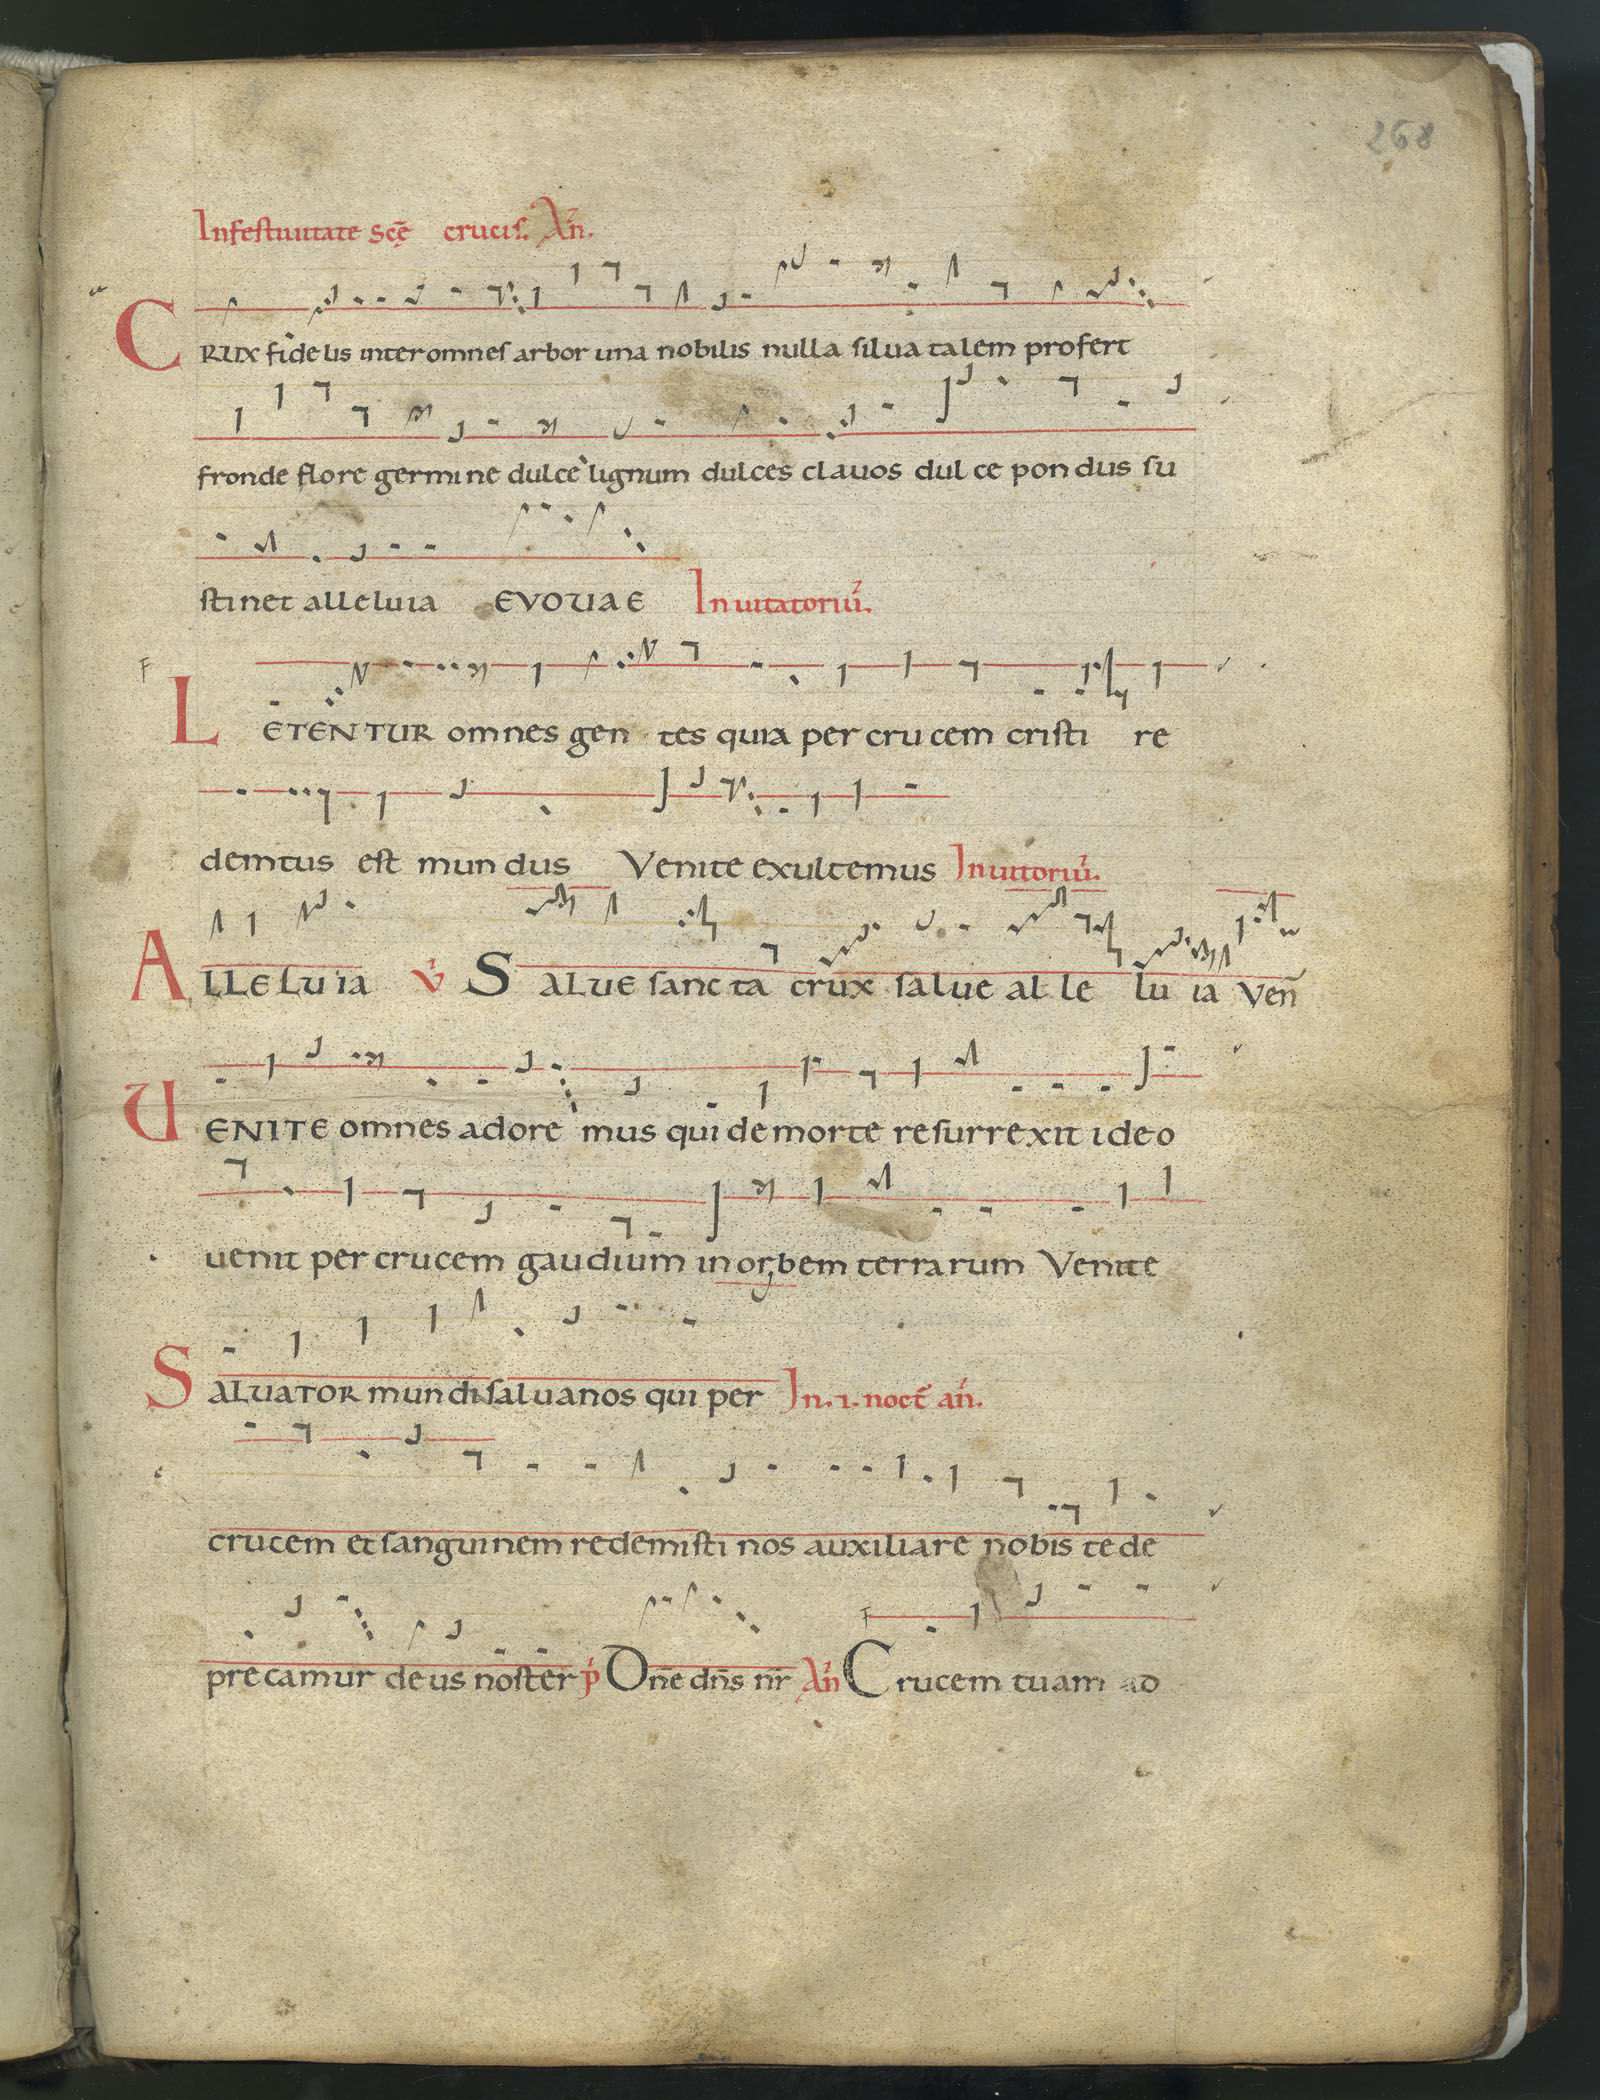 268
Infestiuitate scę̄ crucis. Añ.
CRUX fidelis inter omnes arbor una nobilis nulla silua talem profert
fronde flore germine dulce lignum dulces clauos dulce pondus su
stinet alleluia EVOVAE Inuitatoriū.
F
LETENTUR omnes gentes quia per crucem cristi re
demtus est mundus Venite exultemus Inuitoriū.
ALLELUIA V SALUE sancta crux salue alleluia Veñ
UENITE omnes adoremus qui de morte resurrexit ideo
uenit per crucem gaudium in orbem terrarum Venite
SALUATOR mundi salua nos qui per In .i. noct̄ añ.
crucem et sanguinem redemisti nos auxiliare nobis te de
F
precamur deus noster p̄ Dñe dñs nr̄ Añ Crucem tuam ad